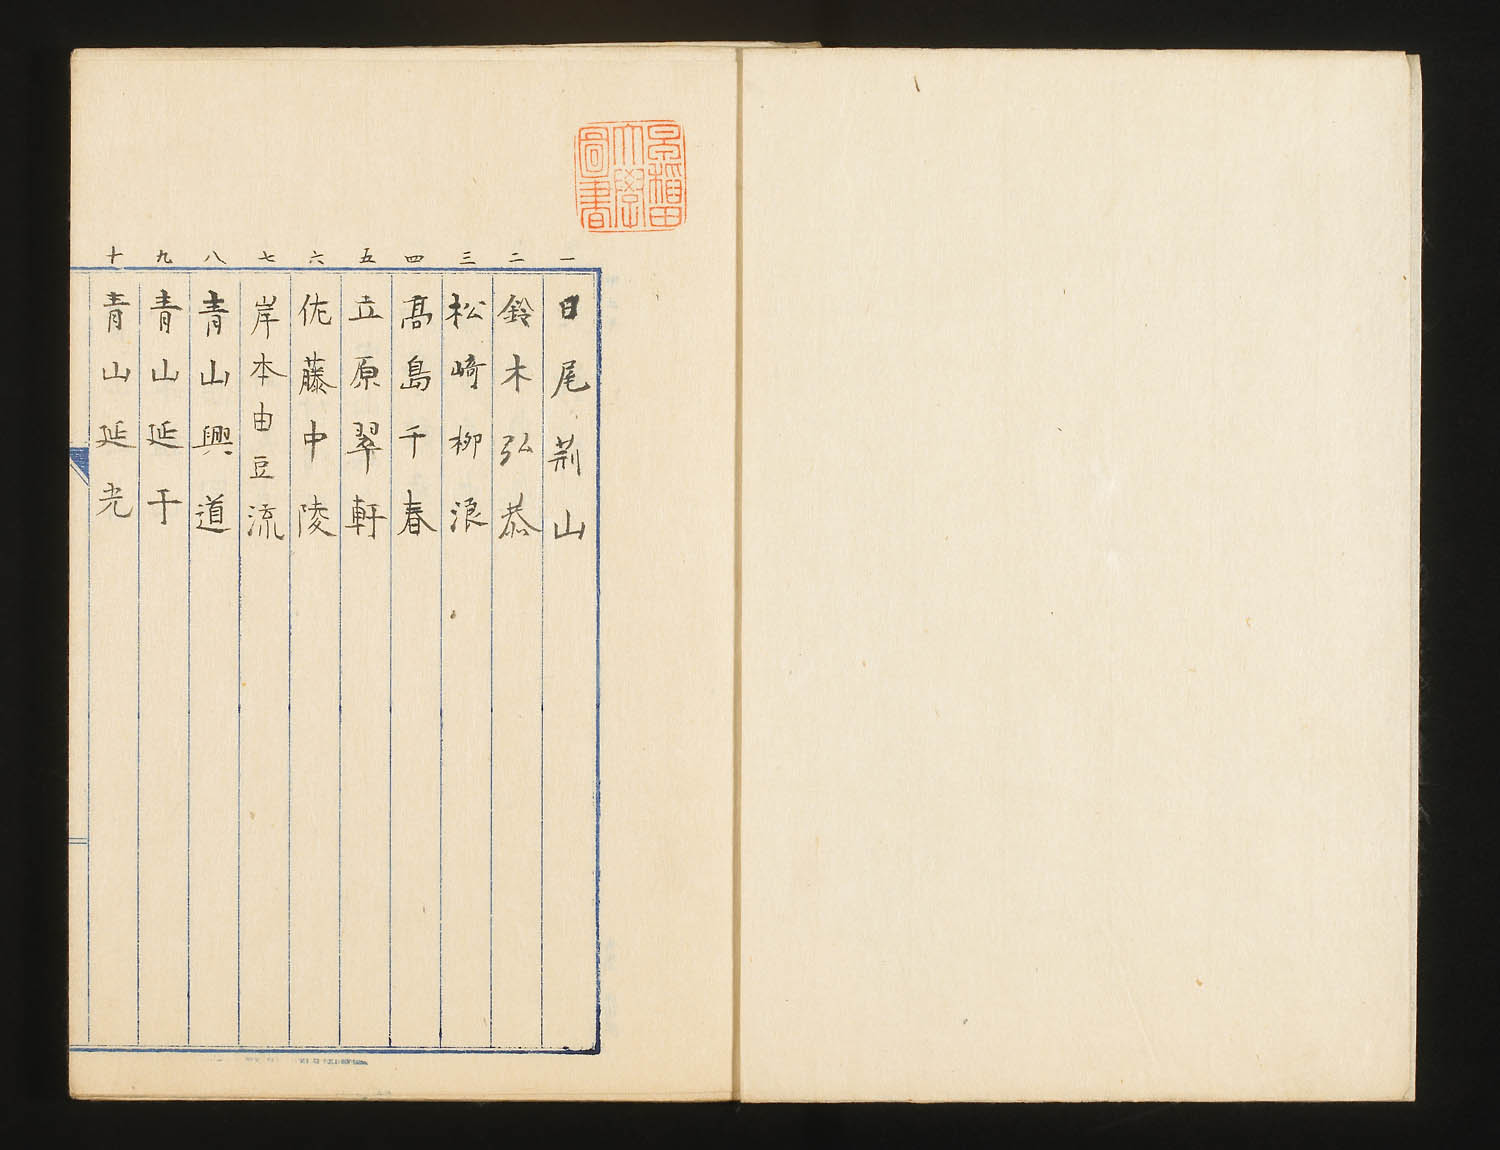 早稲田大學圖書
一 日尾荊山
二 鈴木弘恭
三 松崎柳浪
四 髙島千春
五 立原翠軒
六 佐藤中陵
七 岸本由豆流
八 青山興道
九 青山延于
十 青山延光